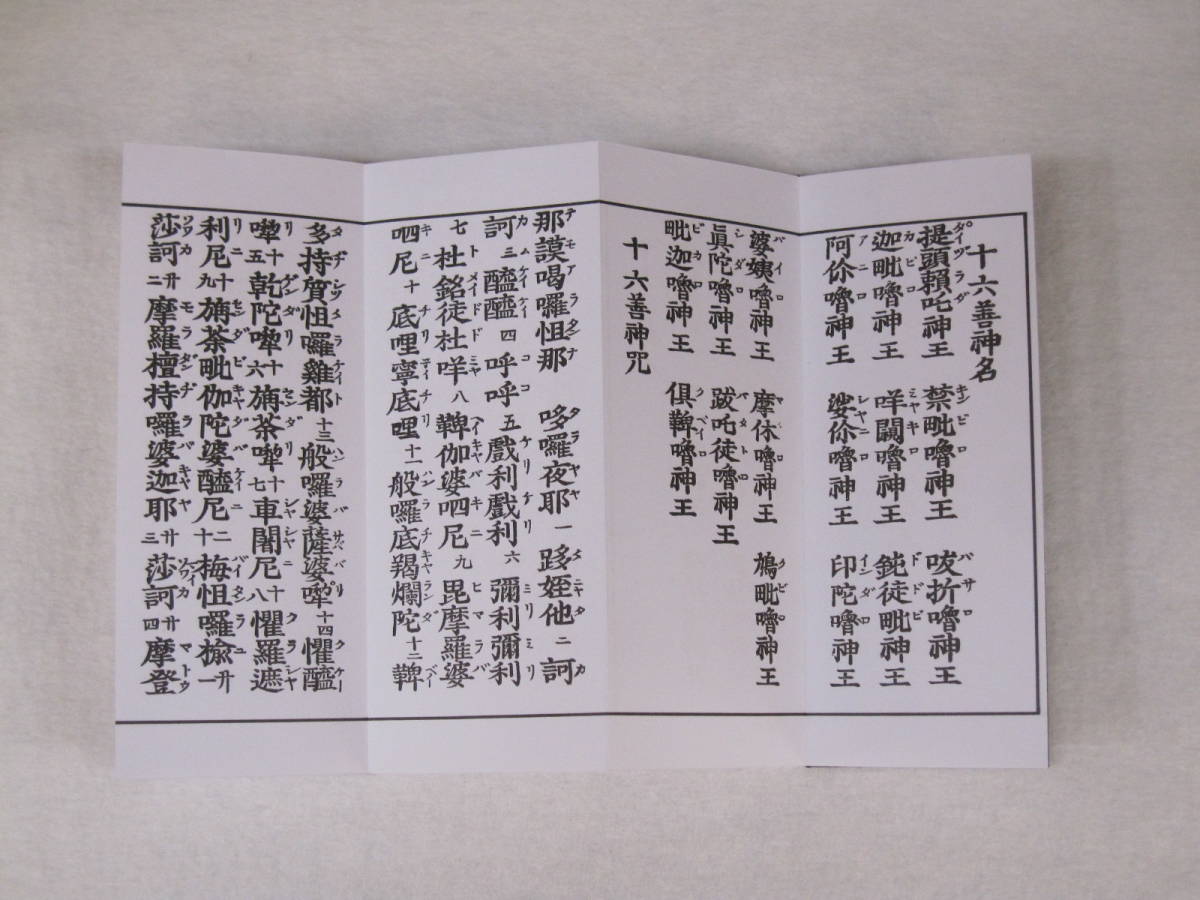 十六善神名
提頭頼吒神王 禁毗嚕神王 咹折嚕神王
迦毗嚕神王 咩闘嚕神王 鈍徒毗神王
阿儞嚕神王 娑儞嚕神王 印陀嚕神王
婆姨嚕神王 摩休嚕神王 鳩毗嚕神王
眞陀嚕神王 跋吒徒嚕神王
毗迦嚕神王 倶鞞嚕神王
十六善神咒
那謨喝囉怛那 哆囉夜耶 一 跢姪他 二 訶
訶 三 醯醯 四 呼呼 五 戲利戲利 六 彌利彌利
七 杜銘徒杜咩 八 鞞伽婆呬尼 九 毘摩羅婆
呬尼 十 底哩寧底哩 十一 般囉底羯爛陀 十二 鞞
多持賀怛囉雞都 十三 般囉婆薩婆㗚 十四 懼醯
㗚 十五 乾陀㗚 十六 旃荼㗚 十七 車闍尼 十八 懼羅遮
利尼 十九 旃荼毗伽陀婆醯尼 二十 梅怛囉揄 廿一
莎訶 廿二 摩羅檀持囉婆迦耶 廿三 莎訶 廿四 摩登